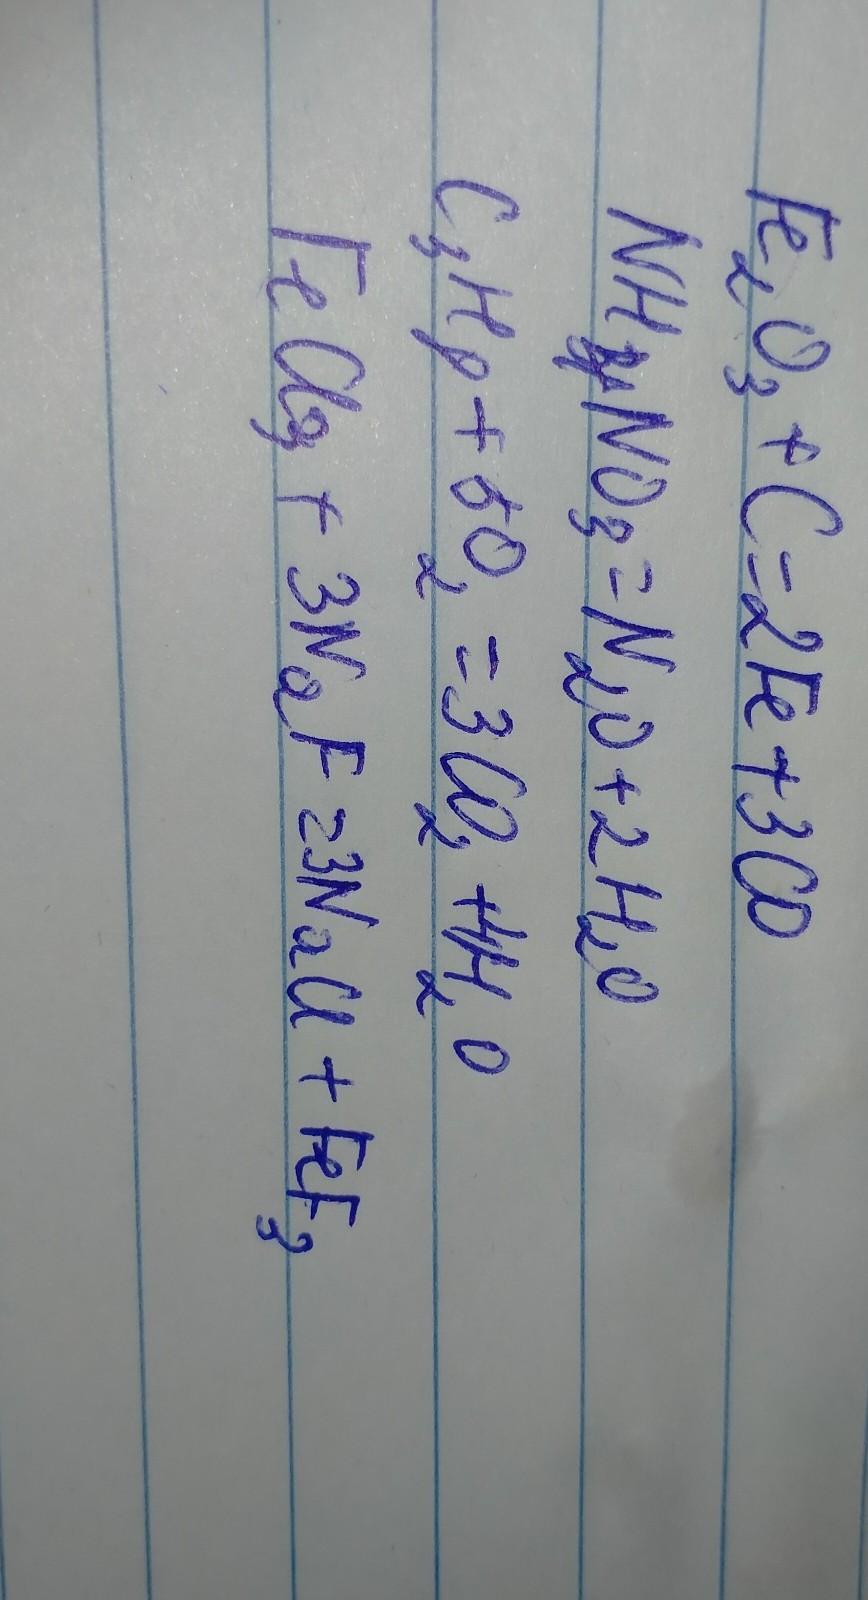 Fe₂O₃ + C = 2Fe + 3CO
NH₄NO₃ = N₂O + 2H₂O
C₃H₈ + 5O₂ = 3CO₂ + 4H₂O
FeCl₃ + 3NaF = 3NaCl + FeF₃